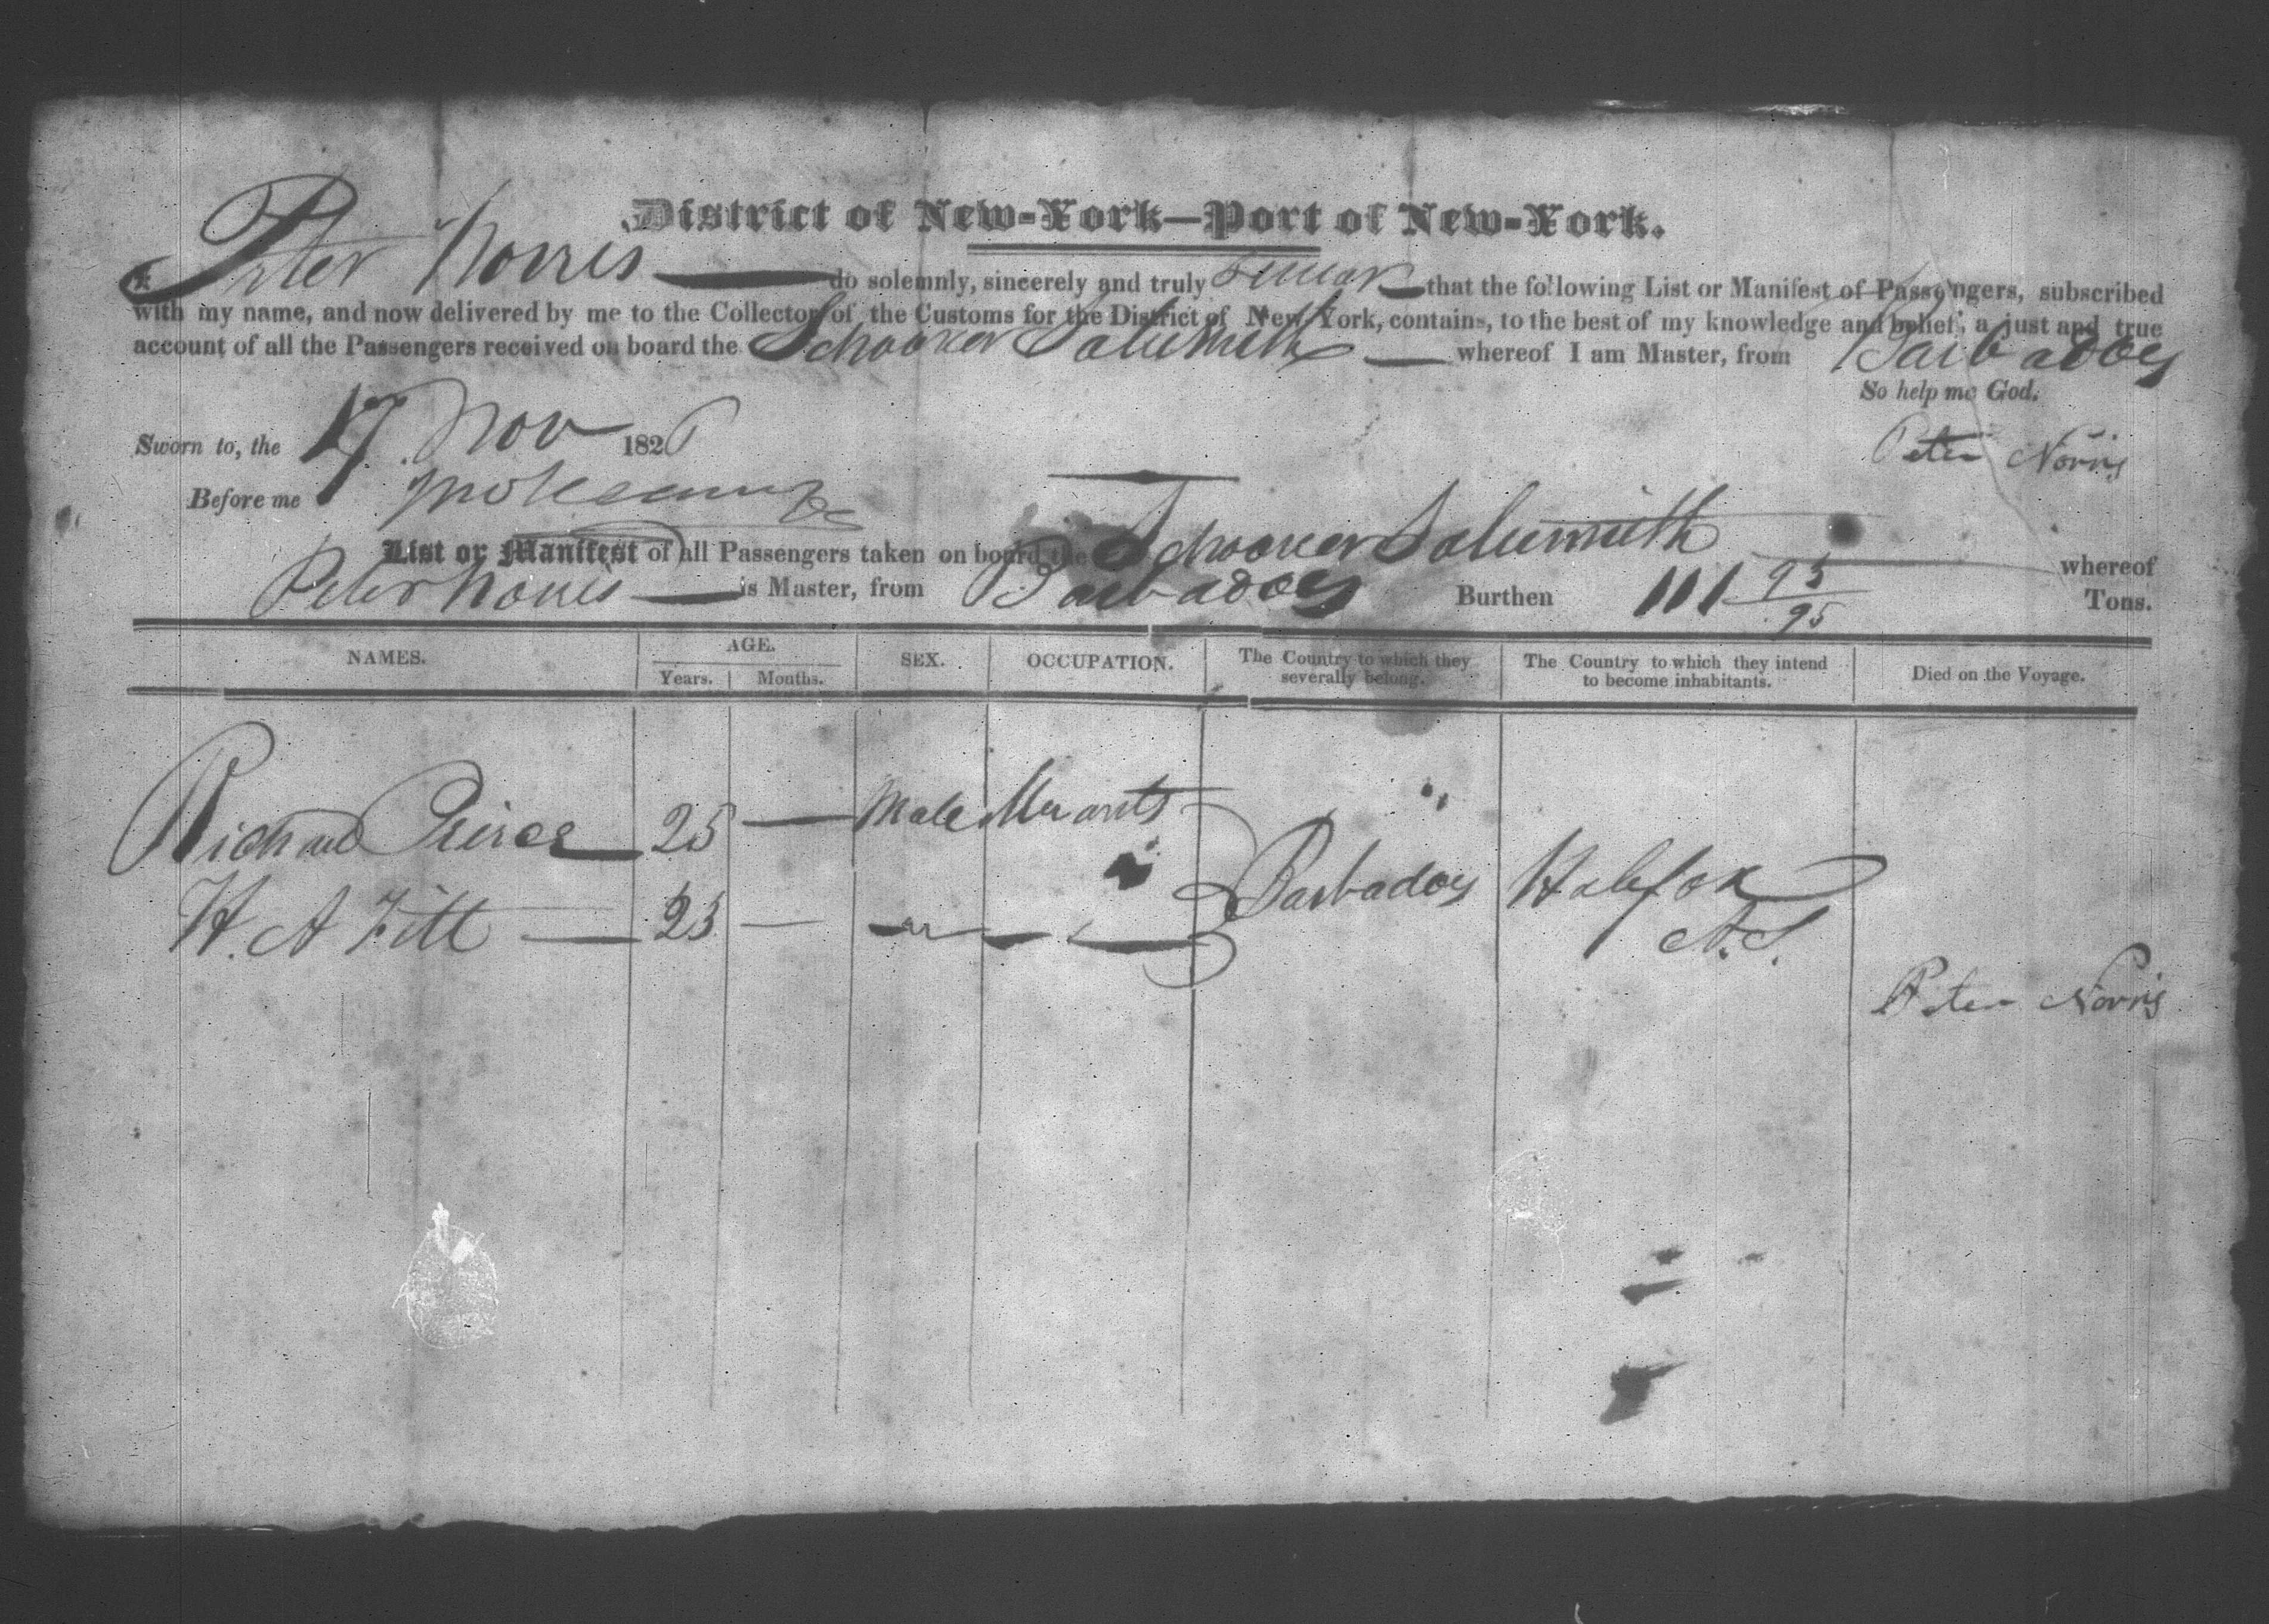 District of New-York—Port of New-York.
I Peter Norris do solemnly, sincerely and truly swear that the following List or Manifest of Passengers, subscribed
with my name, and now delivered by me to the Collector of the Customs for the District of New York, contains, to the best of my knowledge and belief, a just and true
account of all the Passengers received on board the Schooner whereof I am Master, from Barbadoes
So help me God.
Sworn to, the 17 Nov 1826 Peter Norris
Before me
List or Manifest of all Passengers taken on board the Schooner whereof
Peter Norris is Master, from Barbadoes Burthen 111 93/95 Tons.
NAMES. AGE. SEX. OCCUPATION. The Country to which they severally belong. The Country to which they intend to become inhabitants. Died on the Voyage.
Years. Months.
Richard Peirce 25 — Male
H. A 23 — " Barbadoes Halifax
N.S.
Peter Norris